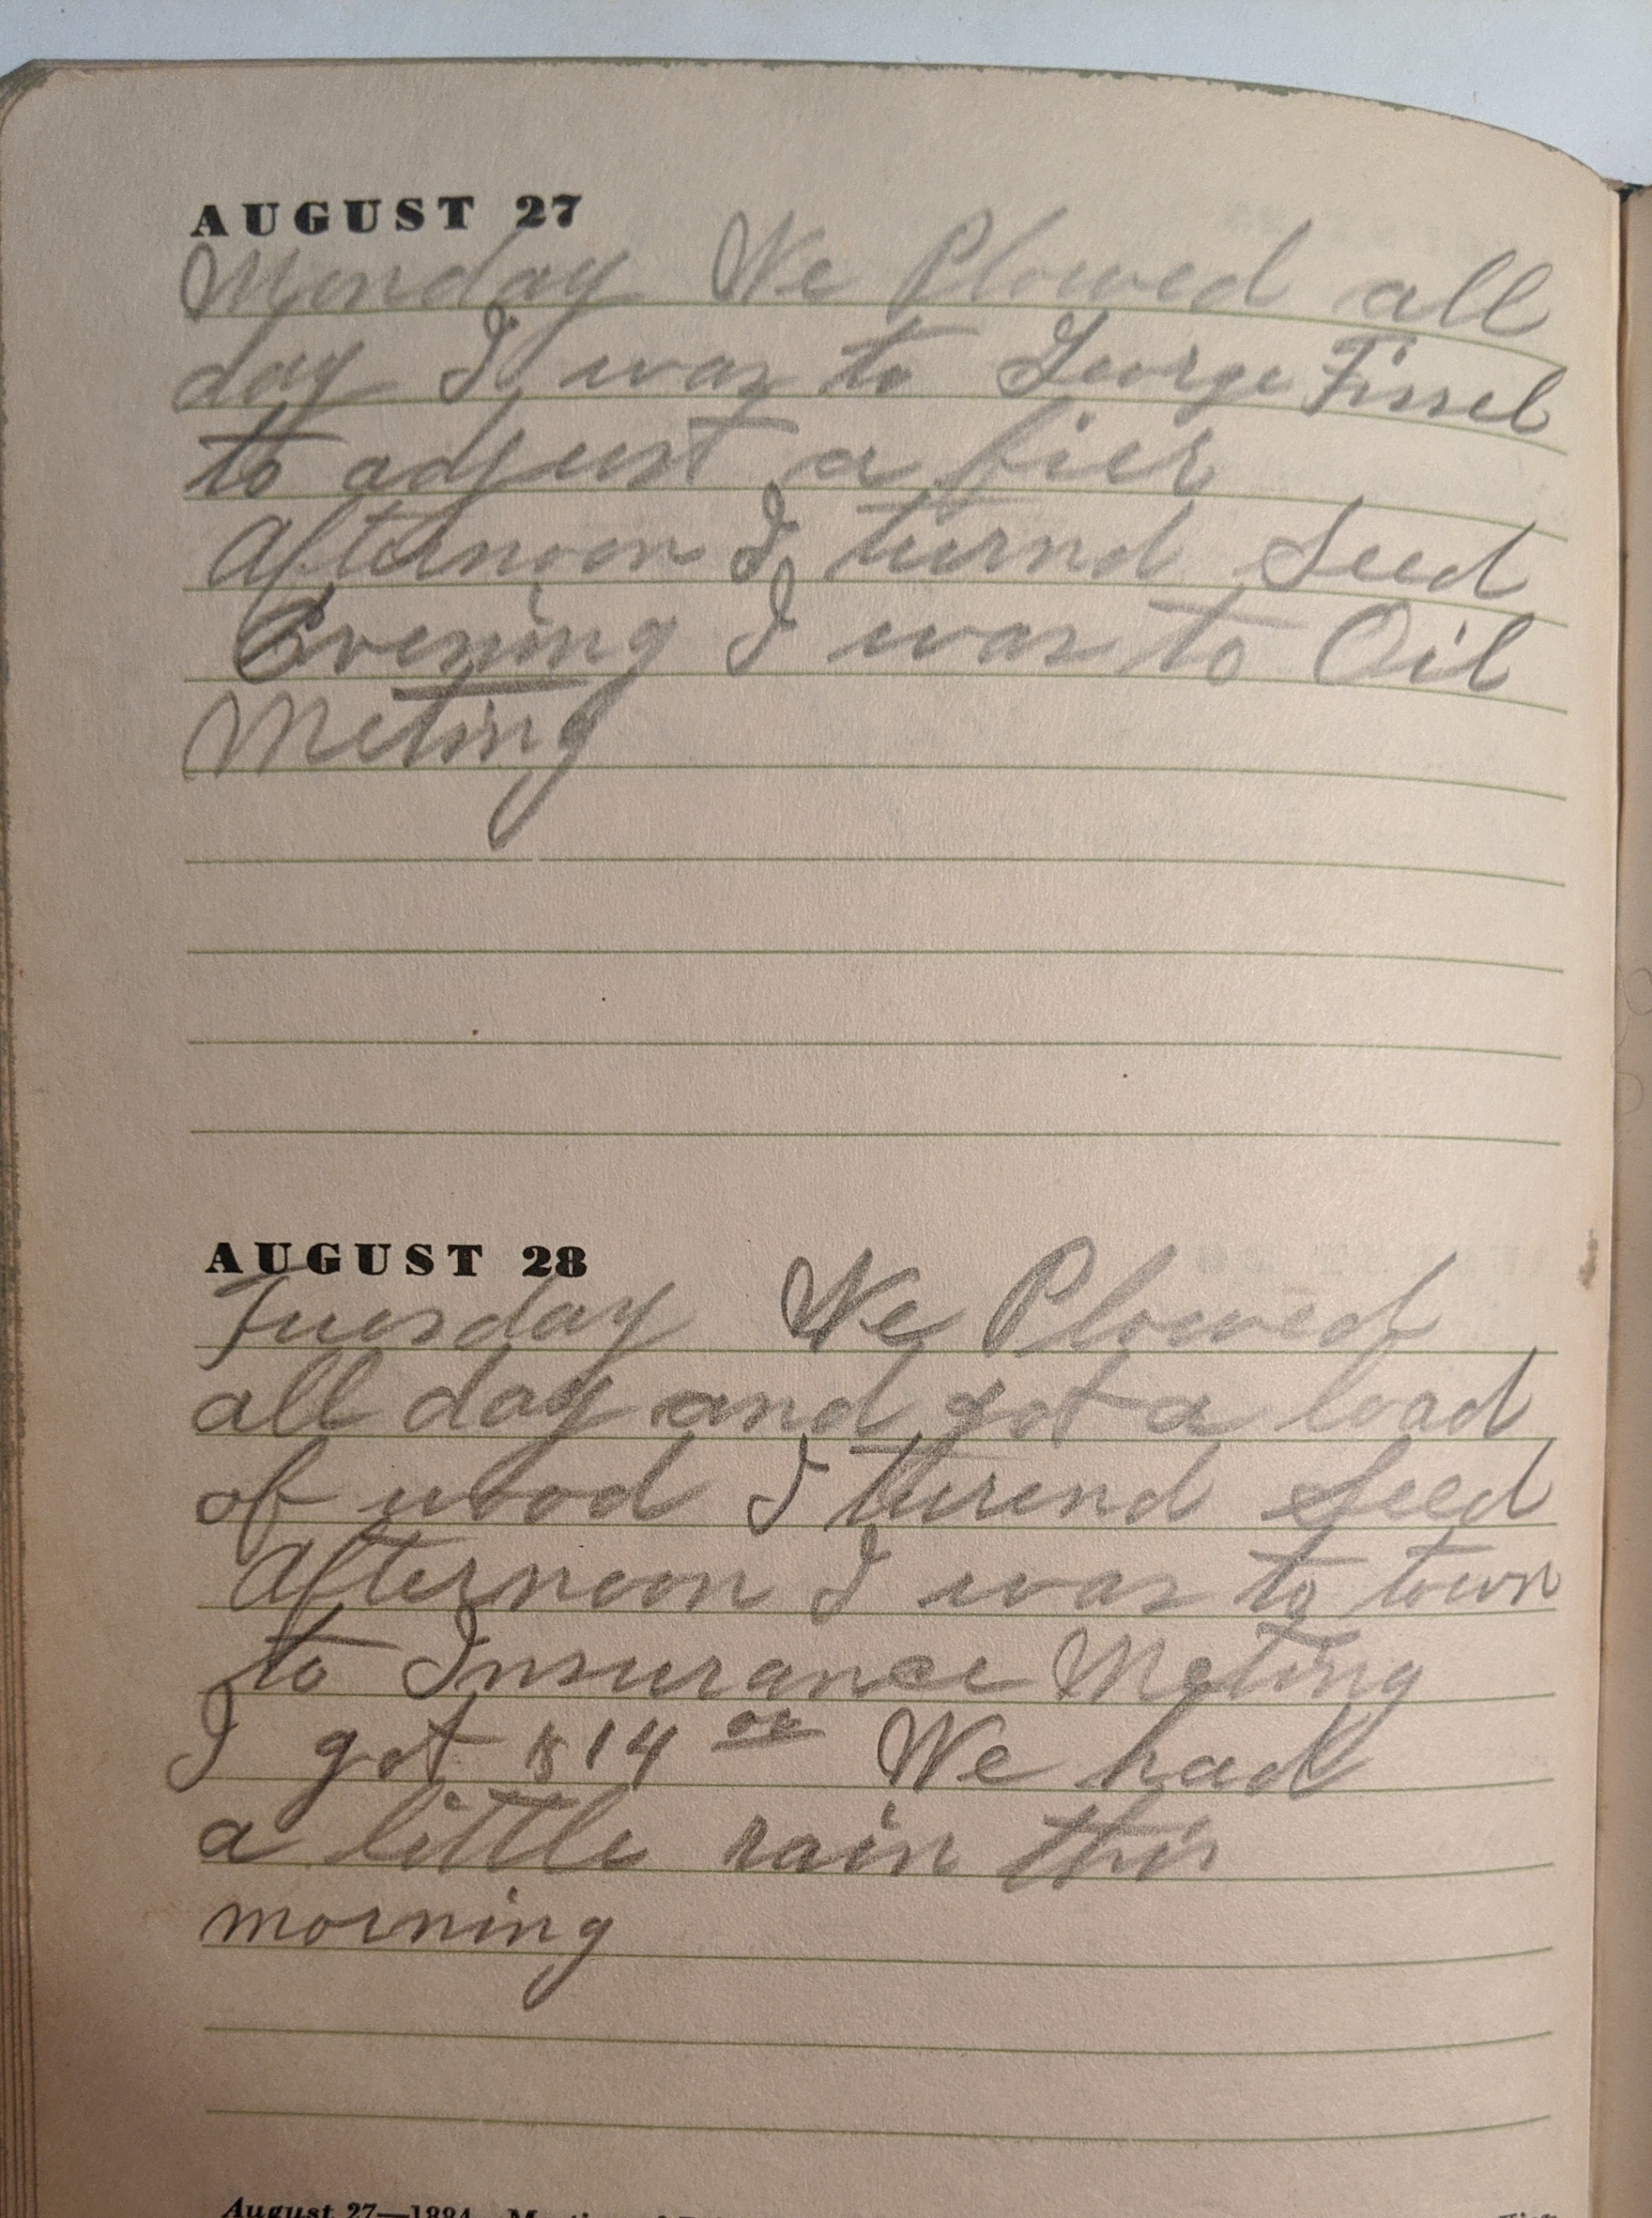 AUGUST 27
Monday We Plowed all
day I was to George Fissel
to adjust a fier
Afternoon I turnd Seed
Evening I was to Oil
Meting
AUGUST 28
Tuesday We Plowed
all day and got a load
of wood I turend Seed
Afternoon I was to town
to Insurance Meting
I got $14 00 We had
a little rain this
morning
August 27—1894